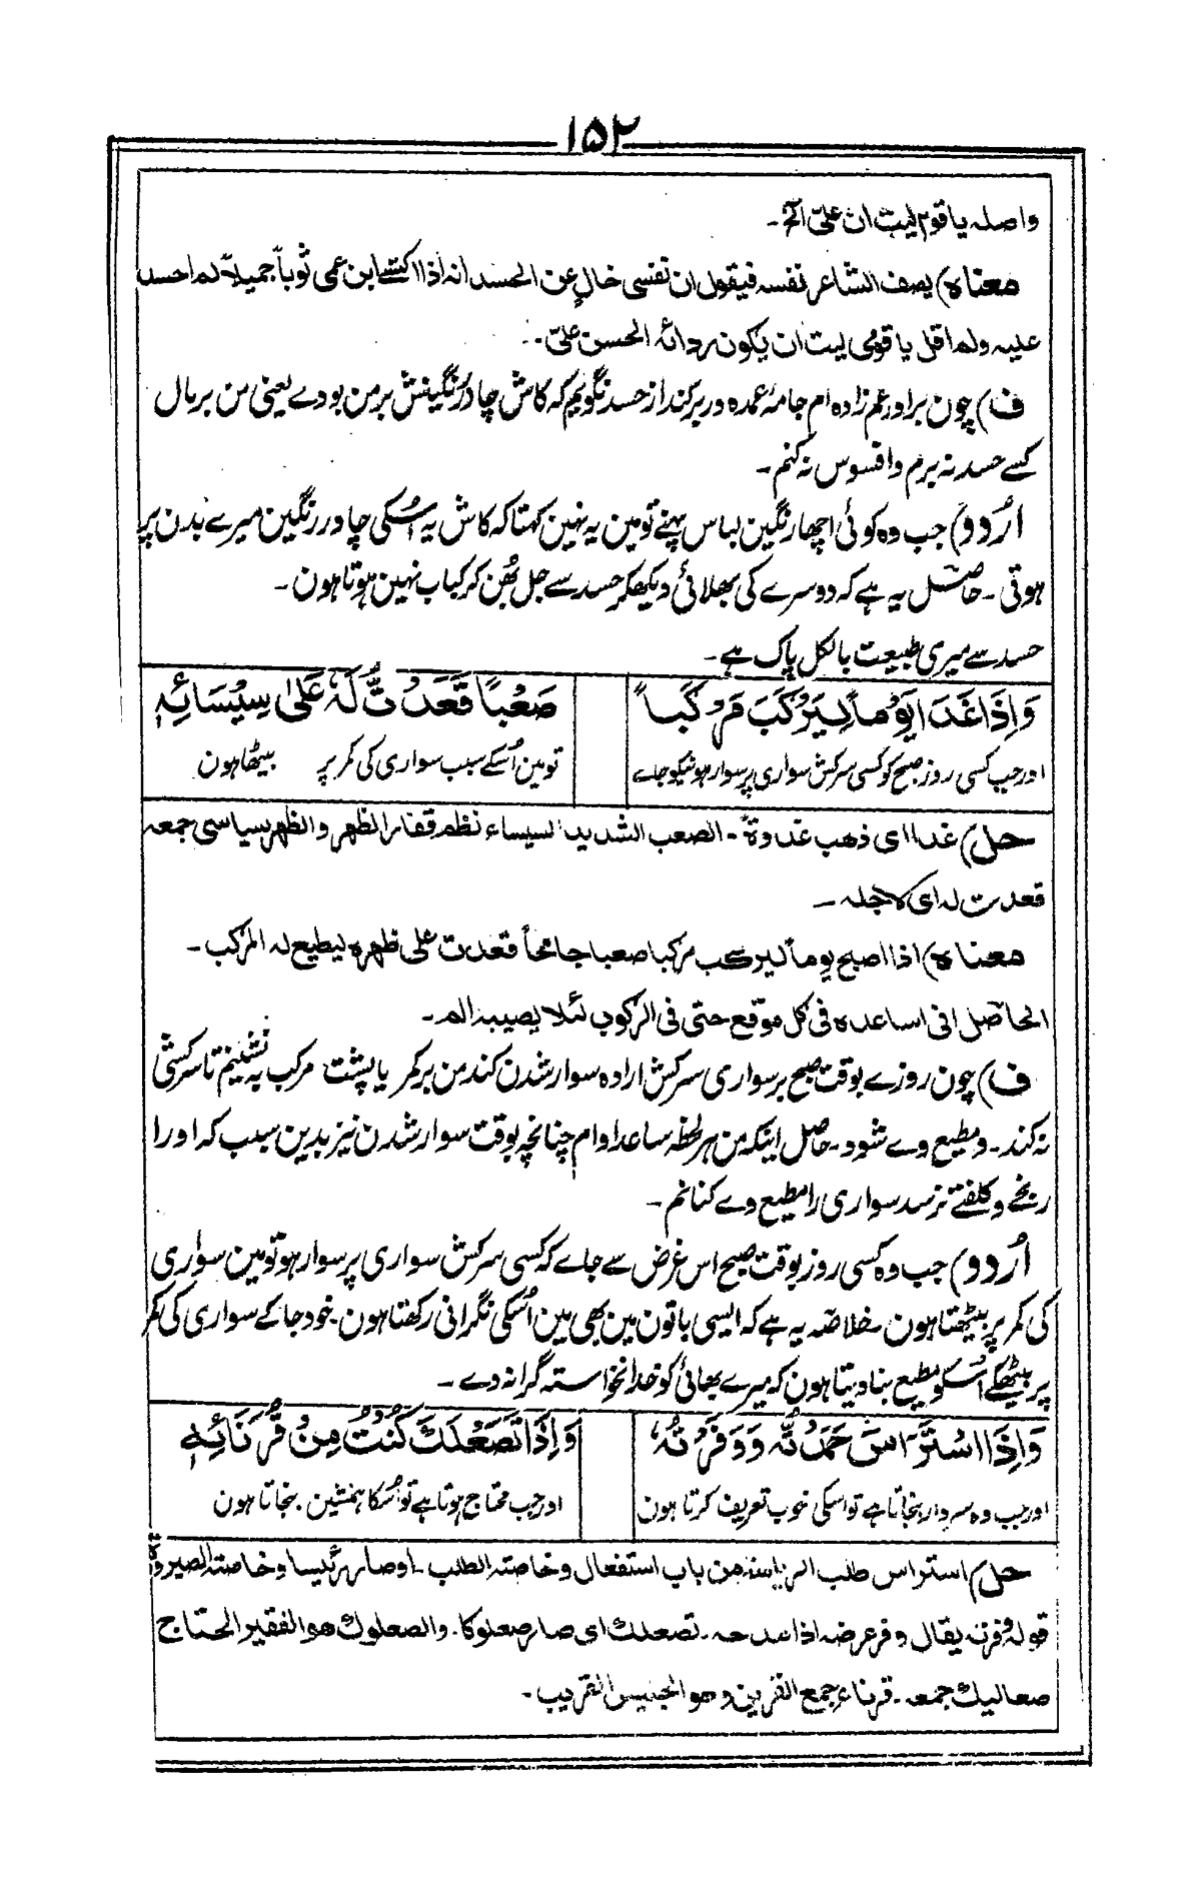 ١٥٢
واصله یا قوم لیت ان علیّ الخ۔
معناہ) یصف الشاعر نفسه فیقول ان نفسی خالٍ عن الحسد انه اذا اکتسے ابن عمی ثوباً جمیلاً لم احسد
علیه ولم اقل یا قومی لیت ان یکون ردائه الحسن علیّ۔۔
ف) چون برادر عم زاده ام جامۂ عمده در بر کند از حسد نگویم که کاش چادر رنگینش بر من بودے یعنی من بر مال
کسے حسد نه برم و افسوس نه کنم۔
اُردو) جب وہ کوئی اچھا رنگین لباس پہنے تو مین یہ نہین کہتا کہ کاش یہ اُسکی چادر رنگین میرے بدن پر
ہوتی۔ حاصل یہ ہے کہ دوسرے کی بھلائی دیکھکر حسد سے جل بُھن کر کباب نہین ہوتا ہون۔
حسد سے میری طبیعت بالکل پاک ہے۔
وَاِذَا غَدَا یَوْماً لِیَرْکَبَ مَرْکَباً صَعْباً قَعَدْتُ لَهٗ عَلیٰ سِیْسَائِهٖ
اور جب کسی روز صبح کو کسی سرکش سواری پر سوار ہونیکو جاے تو مین اُسکے سبب سواری کی کمر پر بیٹھا ہون
حل) غدا ای ذھب غدوةً۔ الصعب الشدید السیساء نظم قفار الظھر والظھر سیاسی جمعه
قعدت له ای لاجله۔
معناہ) اذا اصبح یوماً لیرکب مرکبا صعبا جامحاً قعدت علی ظھرہ لیطیع له المرکب۔
الحاصل انی اساعدہ فی کل موقع حتی فی الرکوب لئلا یصیبه الم۔
ف) چون روزے بوقت صبح بر سواری سرکش اراده سوار شدن کند من بر کمر یا پشت مرکب به نشینم تا سرکشی
نه کند۔ و مطیع وے شود۔ حاصل اینکه من هر لحظه مساعد اوام چنانچه بوقت سوار شدن نیز بدین سبب که او را
رنجے و کلفتے نرسد سواری را مطیع وے کنانم۔
اُردو) جب وہ کسی روز بوقت صبح اس غرض سے جاے کہ کسی سرکش سواری پر سوار ہو تو مین سواری
کی کمر پر بیٹھتا ہون۔ خلاصہ یہ ہے کہ ایسی باتون مین بھی مین اُسکی نگرانی رکھتا ہون۔ خود جا کے سواری کی کمر
پر بیٹھکے اُسکو مطیع بنا دیتا ہون کہ میرے بھائی کو خدانخواستہ گرا نہ دے۔
وَاِذَا اسْتَرَاسَ حَمَدْتُّه وَوَفَرْتُهٗ وَاِذَا تَصَعْلَكَ کُنْتُ مِنْ قُرَنَائِهٖ
اور جب وہ سردار بنجاتا ہے تو اسکی خوب تعریف کرتا ہون اور جب محتاج ہوتا ہے تو اُسکا ہمنشین بنجاتا ہون
حل) استراس طلب الریاسة من باب استفعال وخاصته الطلب۔ اوصار رئیسا وخاصته الصیرورة
قوله وفرته یقال وفر عرضه اذا مدحه۔ تصعلك ای صار صعلوکا۔ والصعلوك هو الفقیر المحتاج
صعالیك جمعه۔ قرناء جمع القرین وهو الجنیس القریب۔